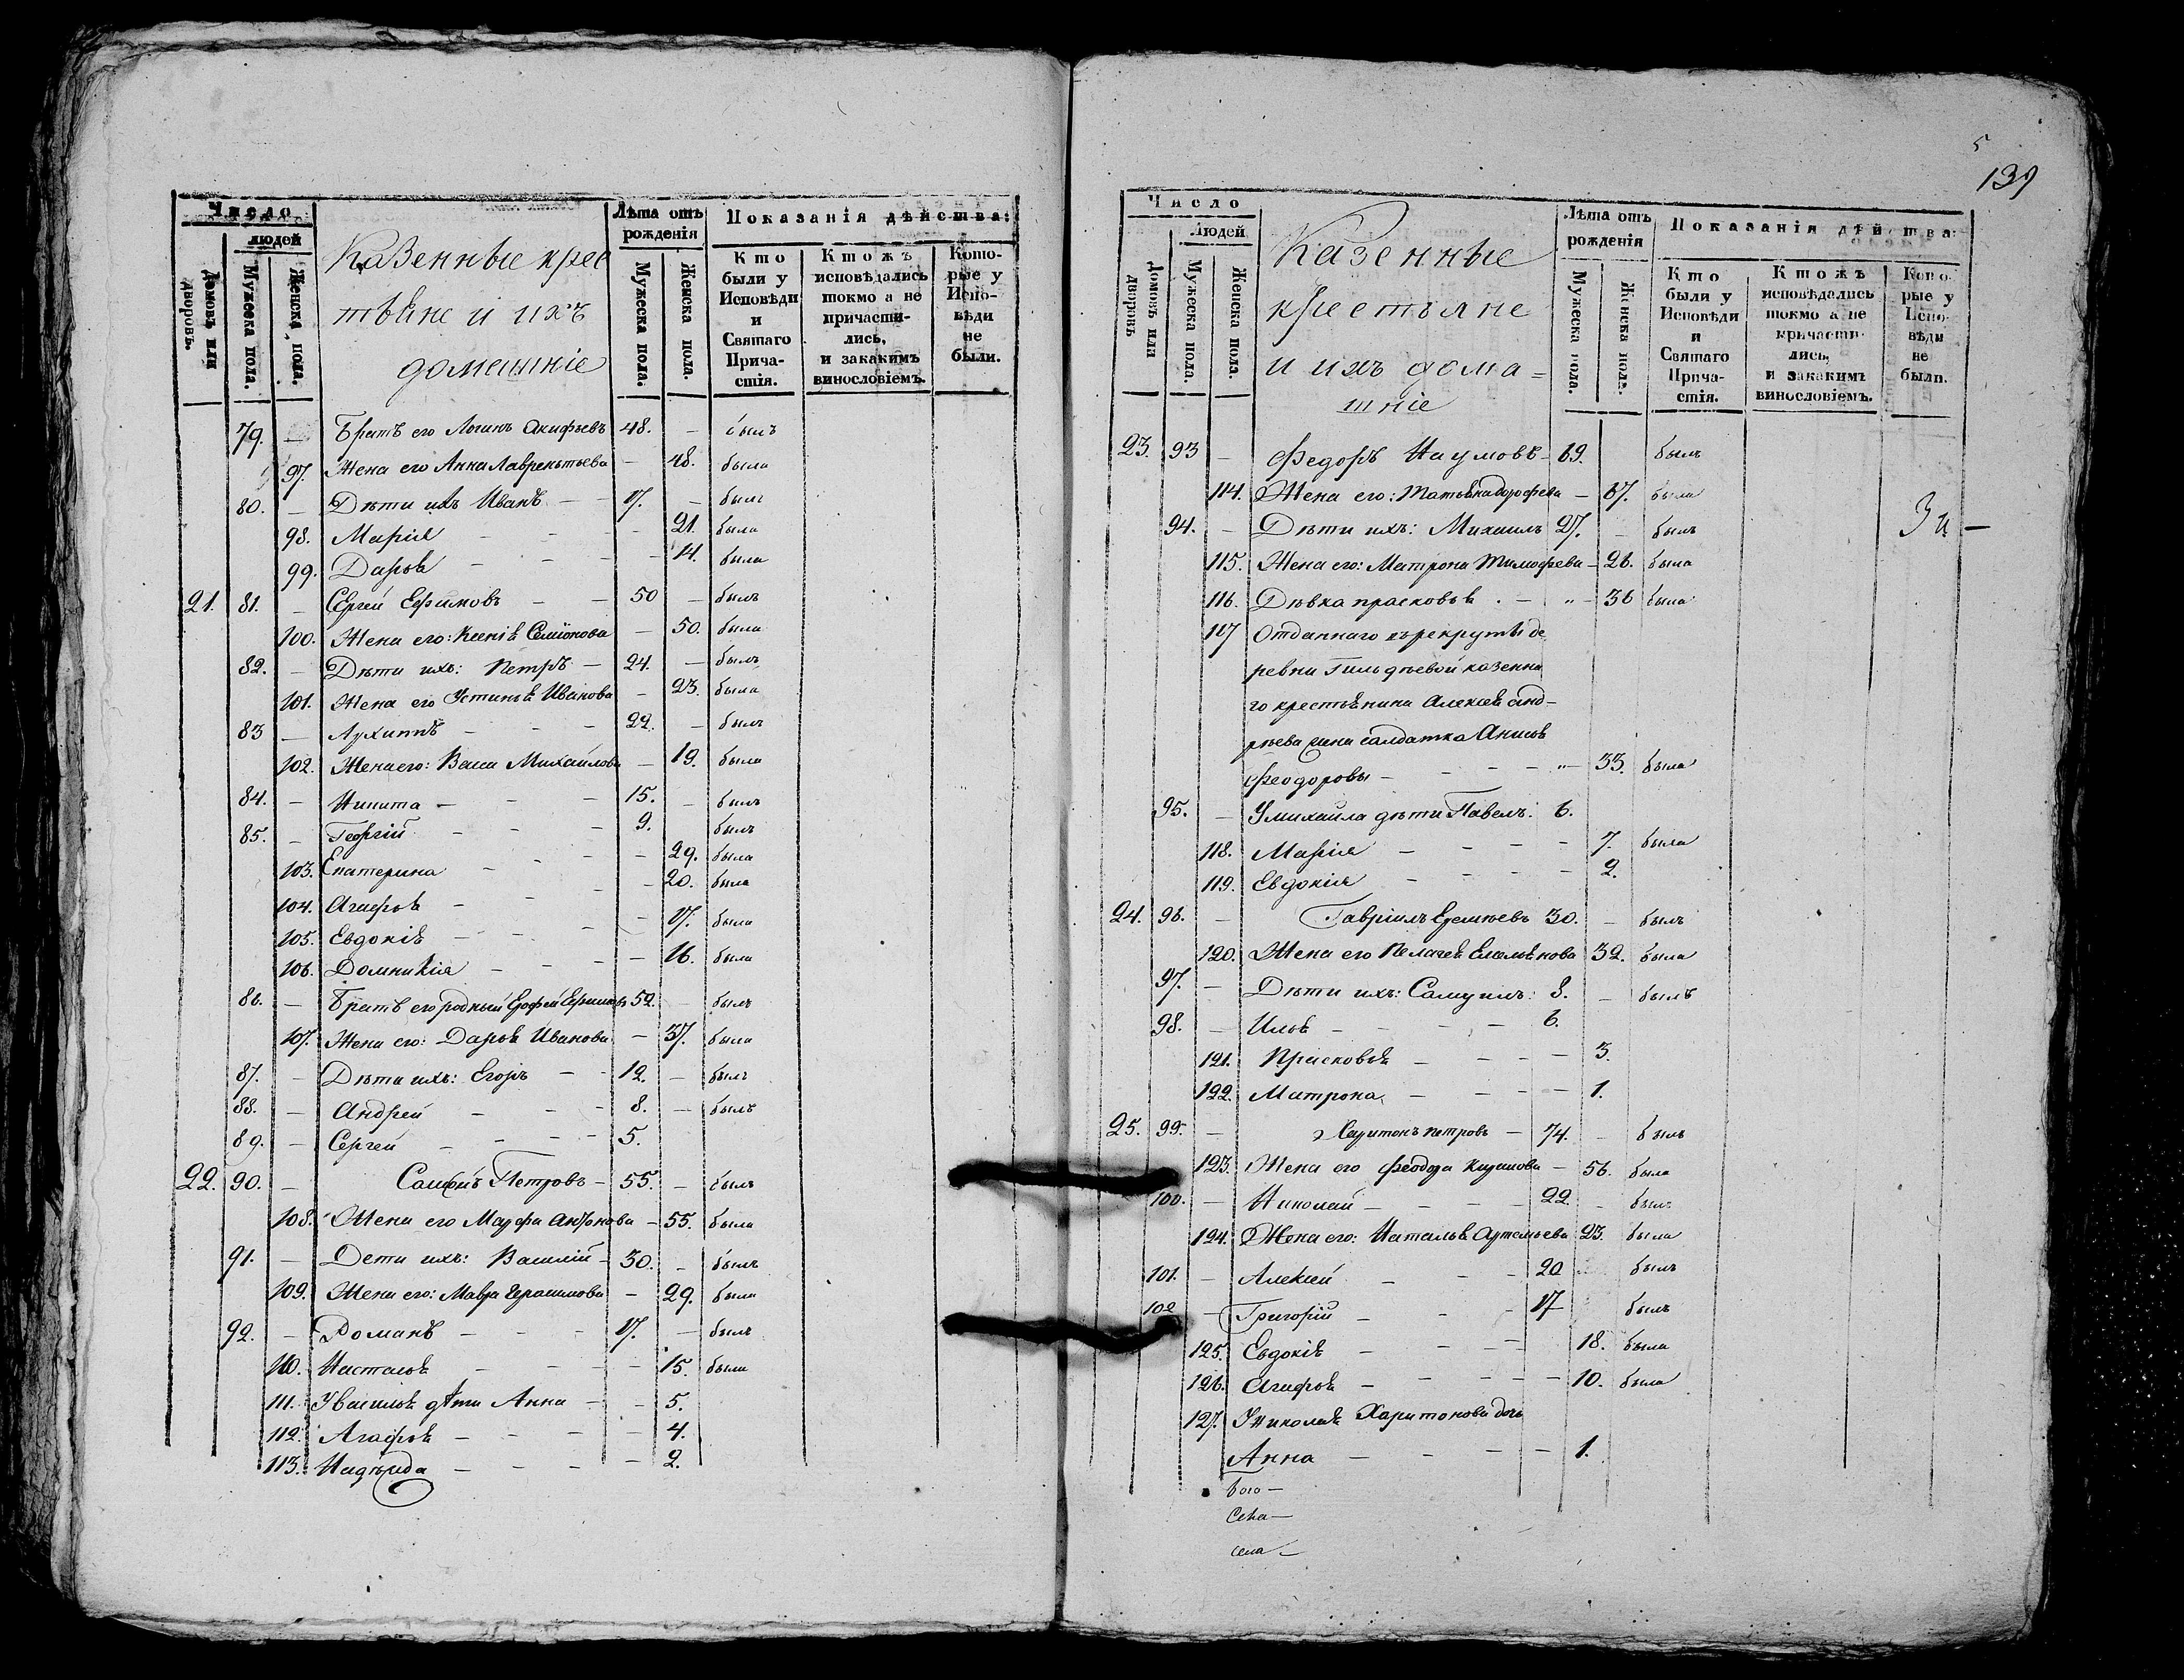 Число
людей
Домовъ или дворовъ.
Мужеска пола.
Женска пола.
Казенные крес
тьяне и ихъ
домешніе
Лѣта отъ рожденія
Мужеска пола.
Женска пола.
Показанія дѣйства:
Кто были у Исповѣди и Святаго Причастія.
Ктожъ исповѣдались токмо а не причастились, и закакимъ винословіемъ.
Которые у Исповѣди не были.
79. — Братъ его Логинъ Акифьевъ 48. — былъ
97. Жена его Анна Лаврентьева — 48. была
80. — Дѣти ихъ Иванъ — 17. — былъ
98. Марія — — — 21. была
99. Дарья — — — 14. была
21. 81. — Сергей Ефимовъ — — 50 — былъ
100. Жена его: Ксенія Семіонова — 50. была
82. — Дѣти ихъ: Петръ — 24. — былъ
101. Жена его Устинья Иванова — 23. была
83 — Архиппъ — — — 22. — былъ
102. Жена его: Васса Михайлова — 19. была
84. — Никита — — — 15. — былъ
85. — Георгій — — — 9. былъ
103. Екатерина — — — 29. была
104. Агафья — — — 20. была
105. Евдокія — — — 17. была
106. Домникія — — — 16. была
86. — Братъ его родный Ерофей Ефимовъ 52. — былъ
107. Жена его: Дарья Иванова — 37. была
87. — Дѣти ихъ: Егоръ — — 12. — былъ
88. — Андрей — — — 8. — былъ
89. — Сергей — — — 5.
22. 90. — Самсонъ Петровъ — 55. — былъ
108. Жена его Марфа Антонова — 55. была
91. — Дети ихъ: Василій — 30. — былъ
109. Жена его: Мавра Герасимова — 29. была
92. — Романъ — — — 17. — былъ
110. Настасья — — — 15. была
111. У Василья дѣти Анна — — 5.
112. Агафья — — — — 4.
113. Надѣжда — — — — 2.
5
139
Число
Людей
Домовъ или дворовъ
Мужеска пола.
Женска пола.
Казенные
крестьяне
и ихъ дома=
шніе
Лѣта отъ рожденія
Мужеска пола.
Женска пола.
Показанія дѣйства:
Кто были у Исповѣди и Святаго Причастія.
Ктожъ исповѣдались токмо а не причастились, и закакимъ винословіемъ.
Которые у Исповѣди не были.
23. 93 — Федоръ Наумовъ — 69. былъ
114. Жена его: Татьяна Дорофеева — 67. была
94. — Дѣти ихъ: Михаилъ 27. — былъ
115. Жена его: Матрона Тимофеева — 26. была
116. Дѣвка Прасковья . — " — 36 была
117 Отданнаго въ рекруты де
ревни Гильдѣевой казенна
го крестьянина Алексѣя Анд-
рѣева жена салдатка Анисья
Феодорова — — — — " — 33. была
95. — У Михаила дѣти Павелъ: 6.
118. Марія — — — — 7. была
119. Евдокія — — — — 2.
24. 96. — Гавріилъ Еремѣевъ 30. — былъ
120. Жена его Пелагея Емельянова 32. была
97. — Дѣти ихъ: Самуилъ: 8. — былъ
98. — Илья — — — 6.
121. Прасковья — — — — 3.
122. Матрона — — — — 1.
25. 99. — Харитонъ Петровъ — 74. — былъ
123. Жена его Феодора — 56. была
100. — Николай — — — 22. — былъ
124. Жена его: Наталья Артемьева 23. была
101. — Алексей — — — 20 былъ
102 — Григорій — — — 17 былъ
125. Евдокія — — — — 18. была
126. Агафья — — — — 10. была
127. У Николая Харитонова дочь
Анна — — — — 1.